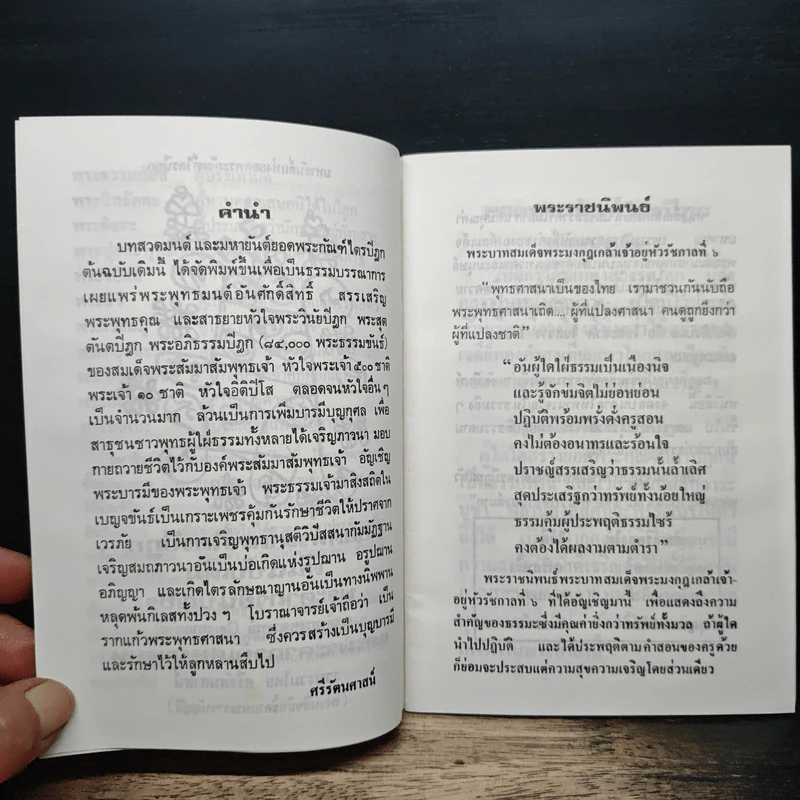 คำนำ
บทสวดมนต์ และมหายันต์ยอดพระกัณฑ์ไตรปิฎก
ต้นฉบับเดิมนี้ ได้จัดพิมพ์ขึ้นเพื่อเป็นธรรมบรรณาการ
เผยแพร่พระพุทธมนต์อันศักดิ์สิทธิ์ สรรเสริญ
พระพุทธคุณ และสาธยายหัวใจพระวินัยปิฎก พระสุต
ตันตปิฎก พระอภิธรรมปิฎก (๘๔,๐๐๐ พระธรรมขันธ์)
ของสมเด็จพระสัมมาสัมพุทธเจ้า หัวใจพระเจ้า ๕๐๐ ชาติ
พระเจ้า ๑๐ ชาติ หัวใจอิติปิโส ตลอดจนหัวใจอื่น ๆ
เป็นจำนวนมาก ล้วนเป็นการเพิ่มบารมีบุญกุศล เพื่อ
สาธุชนชาวพุทธผู้ใฝ่ธรรมทั้งหลายได้เจริญภาวนา มอบ
กายถวายชีวิตไว้กับองค์พระสัมมาสัมพุทธเจ้า อัญเชิญ
พระบารมีของพระพุทธเจ้า พระธรรมเจ้ามาสิงสถิตใน
เบญจขันธ์เป็นเกราะเพชรคุ้มกันรักษาชีวิตให้ปราศจาก
เวรภัย เป็นการเจริญพุทธานุสติวิปัสสนากัมมัฏฐาน
เจริญสมถภาวนาอันเป็นบ่อเกิดแห่งรูปฌาน อรูปฌาน
อภิญญา และเกิดไตรลักษณาญานอันเป็นทางนิพพาน
หลุดพ้นกิเลสทั้งปวง ๆ โบราณาจารย์เจ้าถือว่า เป็น
รากแก้วพระพุทธศาสนา ซึ่งควรสร้างเป็นบุญบารมี
และรักษาไว้ให้ลูกหลานสืบไป
ศรีรัตนศาสน์
พระราชนิพนธ์
พระบาทสมเด็จพระมงกุฎเกล้าเจ้าอยู่หัวรัชกาลที่ ๖
“พุทธศาสนาเป็นของไทย เรามาชวนกันนับถือ
พระพุทธศาสนาเถิด... ผู้ที่แปลงศาสนา คนดูถูกยิ่งกว่า
ผู้ที่แปลงชาติ”
“อันผู้ใดใฝ่ธรรมเป็นเนืองนิจ
และรู้จักข่มจิตไม่ย่อหย่อน
ปฏิบัติพร้อมพรั่งดั่งครูสอน
คงไม่ต้องอนาทรและร้อนใจ
ปราชญ์สรรเสริญว่าธรรมนั้นล้ำเลิศ
สุดประเสริฐกว่าทรัพย์ทั้งน้อยใหญ่
ธรรมคุ้มผู้ประพฤติธรรมไซร้
คงต้องได้ผลงามตามตำรา”
พระราชนิพนธ์พระบาทสมเด็จพระมงกุฎเกล้าเจ้า-
อยู่หัวรัชกาลที่ ๖ ที่ได้อัญเชิญมานี้ เพื่อแสดงถึงความ
สำคัญของธรรมะซึ่งมีคุณค่ายิ่งกว่าทรัพย์ทั้งมวล ถ้าผู้ใด
นำไปปฏิบัติ และได้ประพฤติตามคำสอนของครูด้วย
ก็ย่อมจะประสบแต่ความสุขความเจริญโดยส่วนเดียว